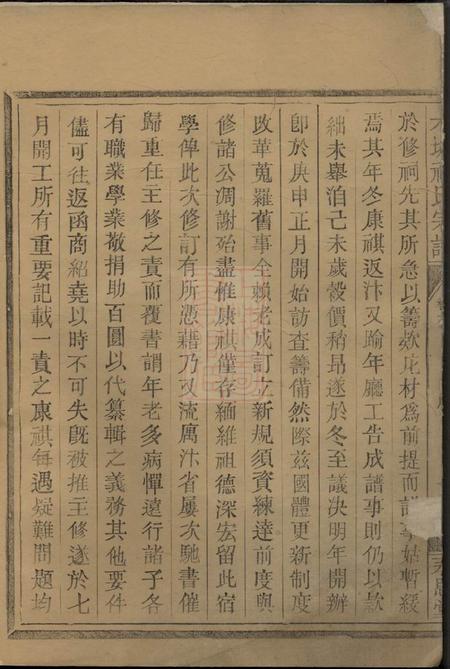 於修祠先其所急以籌欵庀材爲前提而譜事姑暫緩
焉其年冬康祺返汴又踰年廳工告成譜事則仍以款
絀未舉洎己未歲穀價稍昂遂於冬至議決明年開辦
卽於庚申正月開始訪查籌備然際兹國體更新制度
改革蒐羅舊事全賴老成訂立新規須資練達前度與
修諸公凋謝殆盡惟康祺僅存緬維祖德深宏留此宿
學俾此次修訂有所憑藉乃又流寓汴省屢次馳書催
歸重任主修之責而覆書謂年老多病憚遠行諸子各
有職業學業敬捐助百圓以代纂輯之義務其他要件
儘可往返函商紹堯以時不可失旣被推主修遂於七
月開工所有重要記載一責之康祺每遇疑難問題均